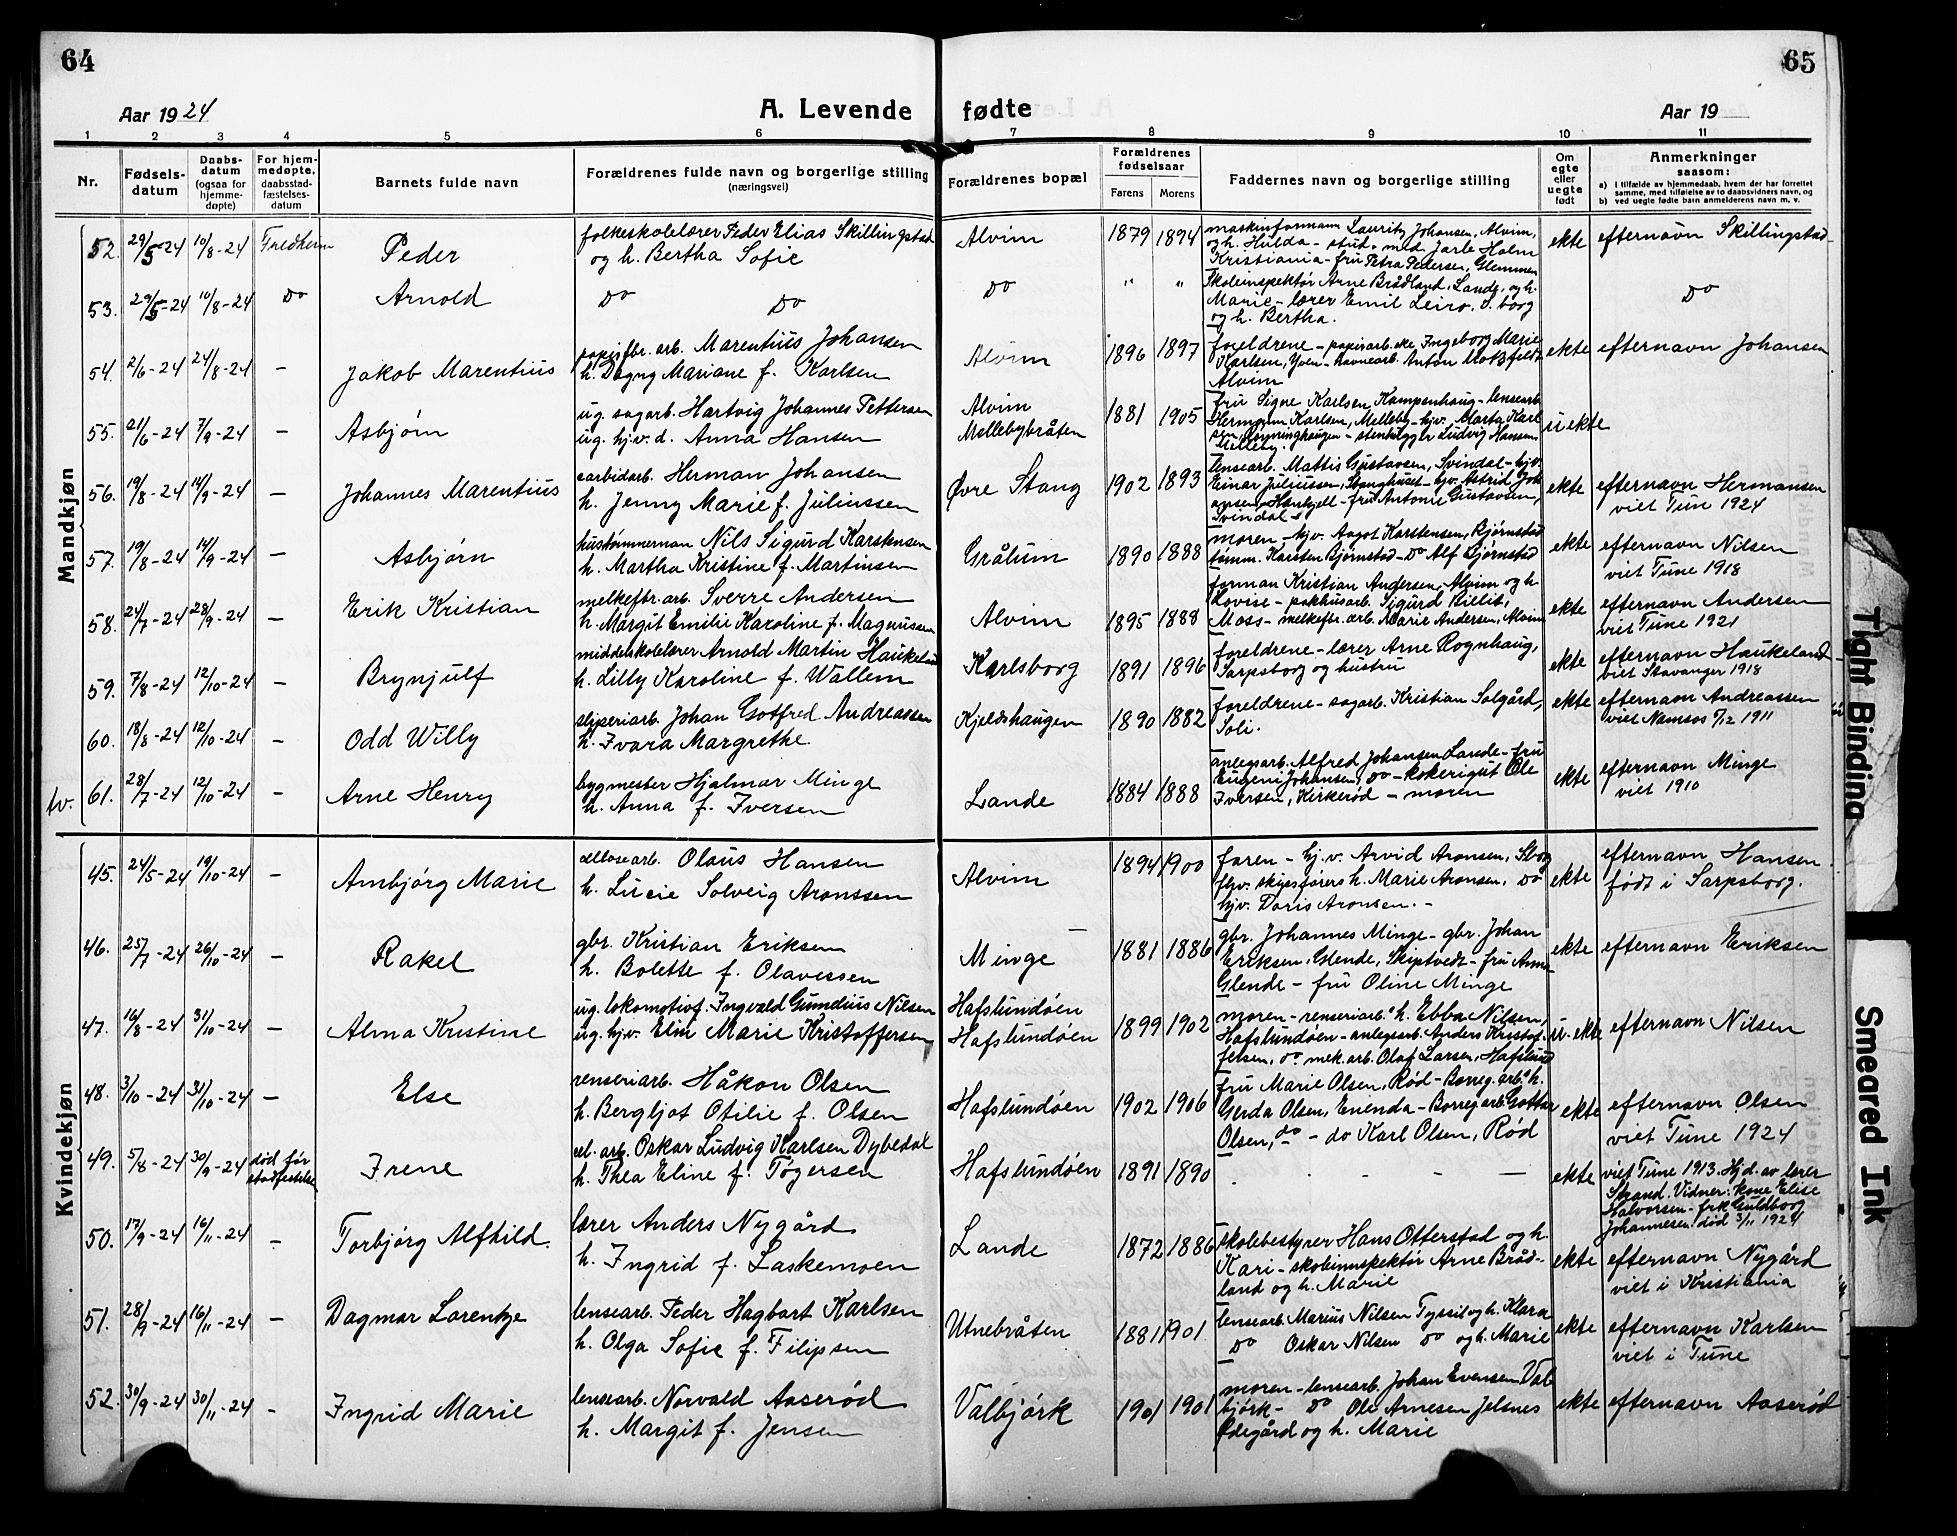 64
65
Aar 1924
A. Levende fødte
Aar 19
1 2 3 4 5 6 7 8 9 10 11
Nr.
Fødsels-
datum
Daabs-
datum
(ogsaa for
hjemme-
døpte)
For hjem-
medøpte,
daabsstad-
fæstelses-
datum
Barnets fulde navn
Forældrenes fulde navn og borgerlige stilling
(næringsvei)
Forældrenes bopæl
Forældrenes
fødselsaar
Farens Morens
Faddernes navn og borgerlige stilling
Om
egte
eller
uegte
født
Anmerkninger
saasom:
a) I tilfælde av hjemmedaab, hvem der har forrettet
samme, med tilføielse av to daabsvidners navn, og
b) ved uegte fødte barn anmelderens navn m. v.
Mandkjøn
52. 29/5-24 10/8-24 Fredheim Peder
folkeskolelærer Peder Elias Skillingstad
og h. Bertha Sofie
Alvim 1879 1894
maskinformann Lauritz Johansen, Alvim,
og h. Hulda - stud. med Jarle Holm
Kristiania - fru Petra Pedersen, Glemmen
ekte efternavn Skillingstad
53. 29/5-24 10/8-24 Do Arnold
Do Do
Do " "
Skoleinspektør Arne Brådland, Lande, og h.
Marie - lærer Emil Leiro, S.borg
og h. Bertha.
Do
54. 2/6-24 24/8-24 - Jakob Marentius
papirfbr. arb. Marentius Johansen
h. Dagny Mariane f. Karlsen
Alvim 1896 1897
foreldrene - papirarb. eke Ingeborg Marie
Karlsen, Yven - havnearb. Anton
Alvim
ekte efternavn Johansen
55. 21/6-24 7/9-24 - Asbjørn
ug. sagarb. Hartvig Johannes Pettersen
ug. hj.v. d. Anna Hansen
Alvim
Mellebybråten
1881 1905
fru Signe Karlsen Kampenhaug - lensearb.
Hermann Karlsen, Melleby - hjv. Marta Karl
sen, - Ludvig Hansen
Melleby.
uekte
56. 19/8-24 14/9-24 - Johannes Marentius
carbidarb. Herman Johansen
h. Jenny Marie f. Juliussen
Øvre Stang 1902 1893
lensearb. Mattis Gustavsen, Svindal - hjv.
Einar Juliussen, Stanghuset - hjv. Astrid Joh
ansen, - fru Antonie Gustavsen,
Svindal
ekte efternavn Hermansen
viet Tune 1924
57. 19/8-24 14/9-24 - Asbjørn
hustømmerman Nils Sigurd Karstensen
h. Martha Kristine f. Martinsen
Grålum 1890 1888
moren - hjv. Aagot Karstensen, Bjørnstad
tømm. Karsten Bjørnstad - Do Alf Bjørnstad
ekte efternavn Nilsen
viet Tune 1918
58. 24/7-24 28/9-24 - Erik Kristian
melkefbr. arb. Sverre Andersen
h. Margit Emilie Karoline f. Magnussen
Alvim 1895 1888
forman Kristian Andersen, Alvim og h
Lovise - pakhusarb. Sigurd
Moss - melkefbr. arb. Marie Andersen, Alvim
ekte efternavn Andersen
viet Tune 1921
59. 7/8-24 12/10-24 - Brynjulf
middelskolelærer Arnold Martin Haukeland
h. Lilly Karoline f. Wallem
Karlsborg 1891 1896
foreldrene - lærer Arne Rognhaug,
Sarpsborg og hustru
ekte efternavn Haukeland
viet Stavanger 1918
60. 18/8-24 12/10-24 - Odd Willy
sliperiarb. Johan Gotfred Andreassen
h. Ivara Margrethe
Kjeldshaugen 1890 1882
foreldrene - sagarb. Kristian Solgård,
Soli.
ekte efternavn Andreassen
viet Namsos 1911
tv. 61. 28/7-24 12/10-24 - Arne Henry
bygmester Hjalmar Minge
h. Anna f. Iversen
Lande 1884 1888
anlegsarb. Alfred Johansen Lande - fru
Eugeni Johansen, do - kokerigut Ole
Iversen, Kirkerød - moren
ekte efternavn Minge
viet 1910
Kvindekjøn
45. 24/5-24 19/10-24 - Arnbjørg Marie
cellosearb. Olaus Hansen
h. Lucie Solveig Aronssen
Alvim 1894 1900
faren - hj.v. Arvid Aronsen, Sborg
fhv. skipsførers h. Marie Aronsen, Do
hjv. Doris Aronsen. -
ekte efternavn Hansen.
født i Sarpsborg.
46. 25/7-24 26/10-24 - Rakel
gbr. Kristian Eriksen
h. Bolette f. Olavessen
Minge 1881 1886
gbr. Johannes Minge - gbr. Johan
Eriksen, Glende, Skiptvedt - fru Anna
Glende - fru Oline Minge
ekte efternavn Eriksen
47. 16/8-24 31/10-24 - Alma Kristine
ug. lokomotivf. Ingvald Gundius Nilsen
ug. hj.v. Elin Marie Kristoffersen
Hafslundöen
Hafslundöen
1899 1902
moren - renseriarb.' h. Ebba Nilsen,
Hafslundöen - anlegsarb. Anders Kristof-
fersen, do mek. arb. Olaf Larsen, Hafslund
u-ekte efternavn Nilsen
48. 3/10-24 31/10-24 - Else
renseriarb. Håkon Olsen
h. Bergljot Otilie f. Olsen
Hafslundöen 1902 1906
fru Marie Olsen, Rød - Borreg. arb.' h.
Gerda Olsen, Enenda - Borreg arb. Gottar
Olsen, do - do Karl Olsen, Rød
ekte efternavn Olsen
viet Tune 1924
49. 5/8-24 30/9-24 död før
stadfestelse
Irene
cel. arb. Oskar Ludvig Karlsen Dybedal
h. Thea Eline f. Tøgersen
Hafslundöen 1891 1890 - - -
ekte viet Tune 1913. Hj.d. av lærer
Strand. Vidner: kone Elise
Halvorsen - frk Guldborg
Johannesen. död 3/11 1924
50. 17/9-24 16/11-24 - Torbjørg Alfhild.
lærer Anders Nygård
h. Ingrid f. Laskemoen
Lande 1872 1886
skolebestyrer Hans Otterstad og h.
Kari - skoleinspektør Arne Bråd-
land og h. Marie
ekte efternavn Nygård
viet i Kristiania
51. 28/9-24 16/11-24 - Dagmar Lorentze
lensearb. Peder Hagbart Karlsen
h. Olga Sofie f. Filipsen
Utnebråten 1881 1901
lensearb. Marius Nilsen Tyssil og h. Klara
Do Oskar Nilsen Do og h. Marie
ekte efternavn Karlsen
viet i Tune
52. 30/9-24 30/11-24 - Ingrid Marie
lensearb. Norvald Aaserød
h. Margit f. Jensen
Valbjörk 1901 1901
moren - lensearb. Johan Evensen Val
björk - Do Ole Arnesen Jelsnes
Ødegård og h. Marie
ekte efternavn Aaserød
Tight Binding
Smeared Ink